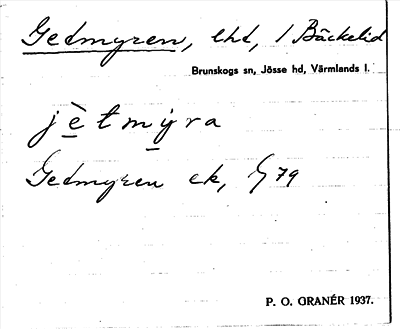 Getmyren, lht, / Bäckelid
Brunskogs sn, Jösse hd, Värmlands l.
jè̲tmy̲ra
Getmyren ek, G 79
P. O. ORANÉR 1937.